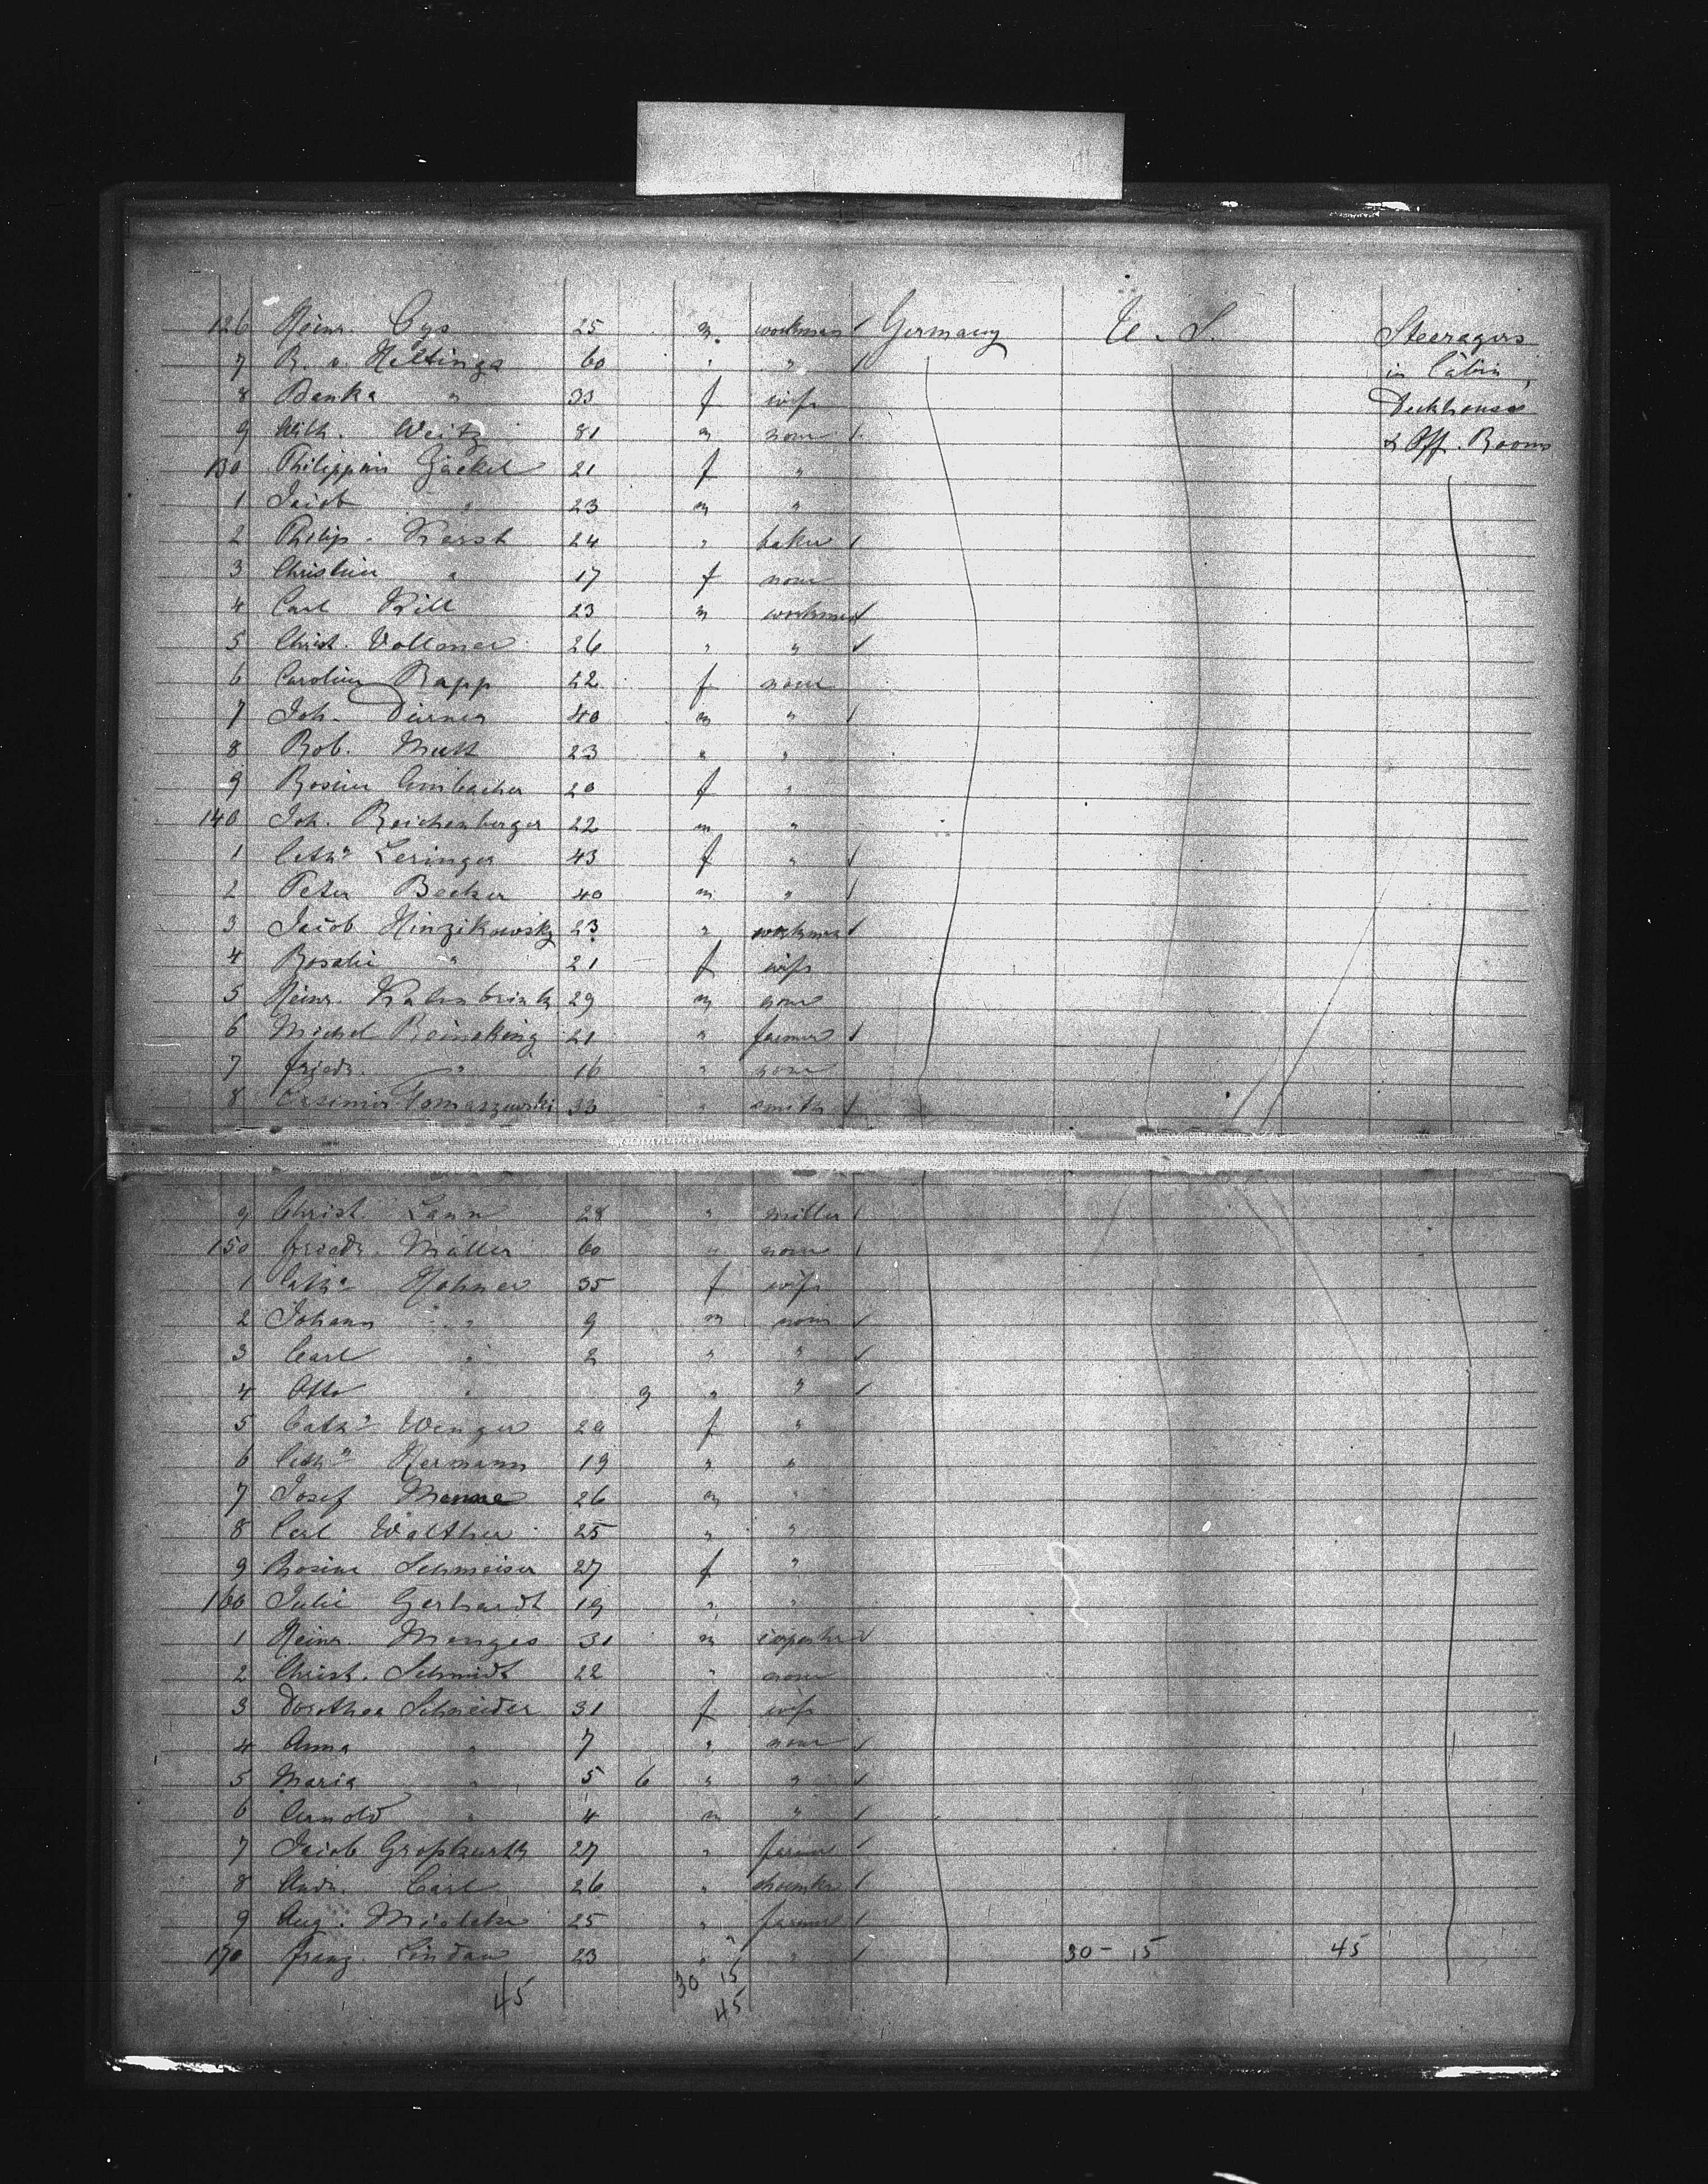 126 Heinr. Cys 25 m. workman Germany U. S. Steeragers
7 R. v. Heltinga 60 " " in Cabin,
8 Banka " 33 f wife Deckhouse
9 Wilh. Weitz 31 m none & Off. Rooms
130 Philippin Jäckel 21 f "
1 Jacob " 23 m "
2 Philip. Kersh 24 " baker
3 Christine " 17 f none
4 Carl Kill 23 m workman
5 Christ. Vollmer 26 " "
6 Caroline Rapp 22 f none
7 Joh. Dürner 40 m "
8 Rob. Mutt 23 " "
9 Rosine 20 f "
140 Joh. Reichenberger 22 m "
1 Cath. Leringer 43 f "
2 Peter Becker 40 m "
3 Jacob Hinzikowsky 23 " workman
4 Rosalie " 21 f wife
5 Heinr. Kalmbrink 29 m none
6 Michel Reineking 21 " farmer
7 Friedr. " 16 " none
8 Casimir Tomaszewski 33 " smith
9 Christ. Lann 28 " miller
150 Friedr. Müller 60 " none
1 Cath. Hohner 35 f wife
2 Johann " 9 m none
3 Carl " 2 " "
4 Otto " 9 " "
5 Cath. Wenger 20 f "
6 Cath. Hermann 19 " "
7 Josef Menne 26 m "
8 Carl Walther 25 " "
9 Rosine Schmeiser 27 f "
160 Julie Gerhardt 19 " "
1 Heinr. Menges 31 m carpenter
2 Christ. Schmidt 22 " none
3 Dorothea Schneider 31 f wife
4 Anna " 7 " none
5 Maria " 5 6 " "
6 Arnold " 4 m "
7 Jacob Großkurth 27 " farmer
8 Andr. Carl 26 "
9 Aug. Mielcke 25 " farmer
170 Franz Lindau 23 " " 30 - 15 45
45 30 15
45